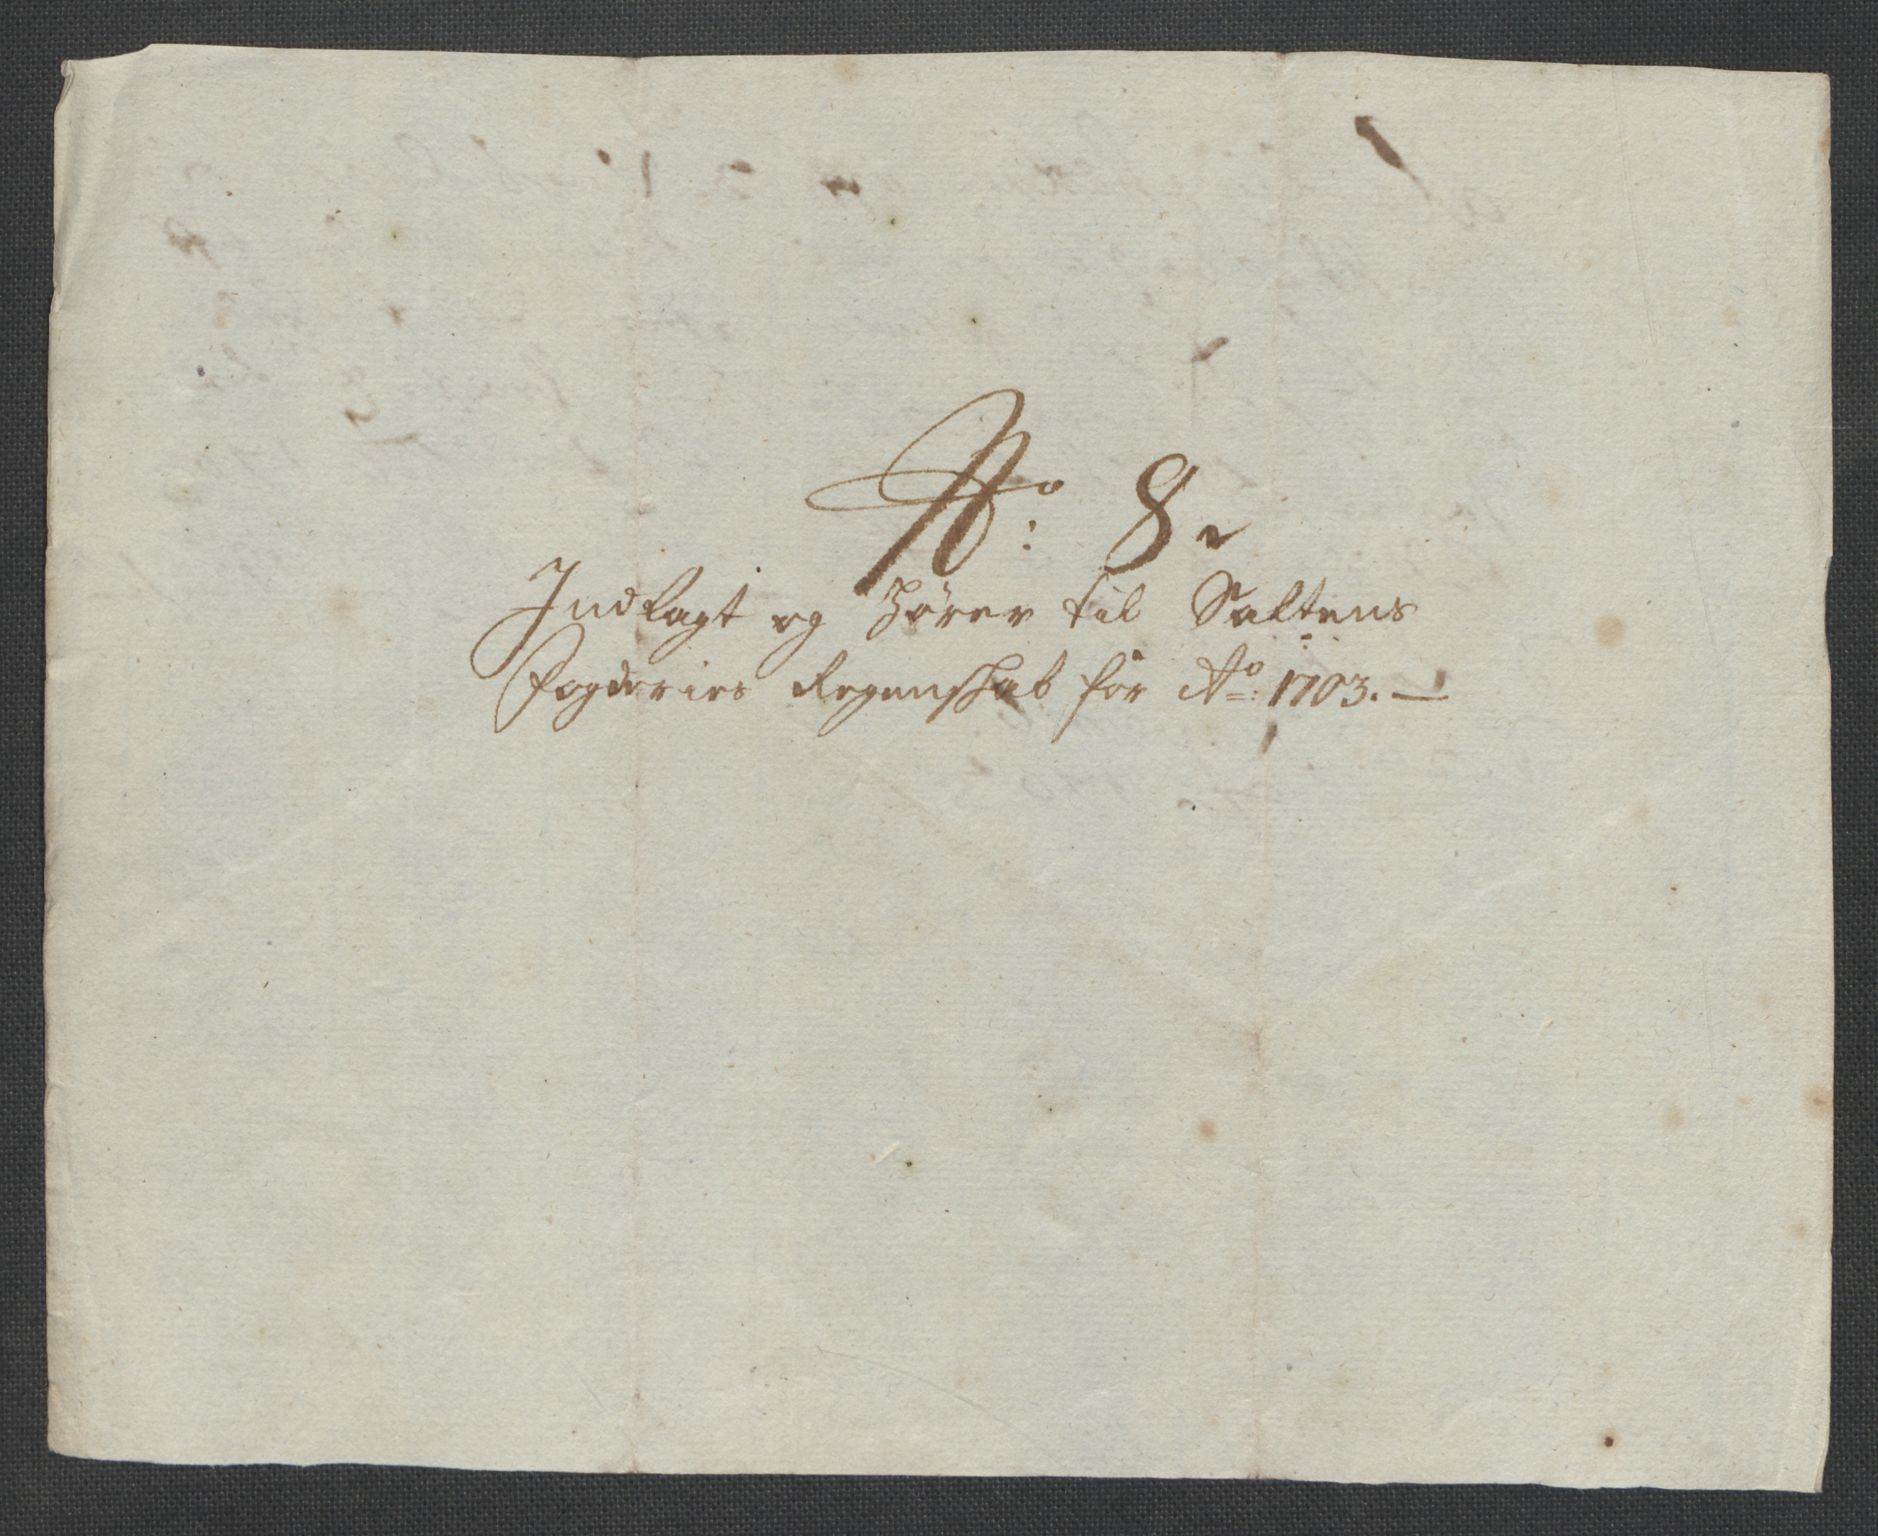 No: 8.
Indlagt og hører til Saltens
Fogderies Regenskab for Ao: 1703. —